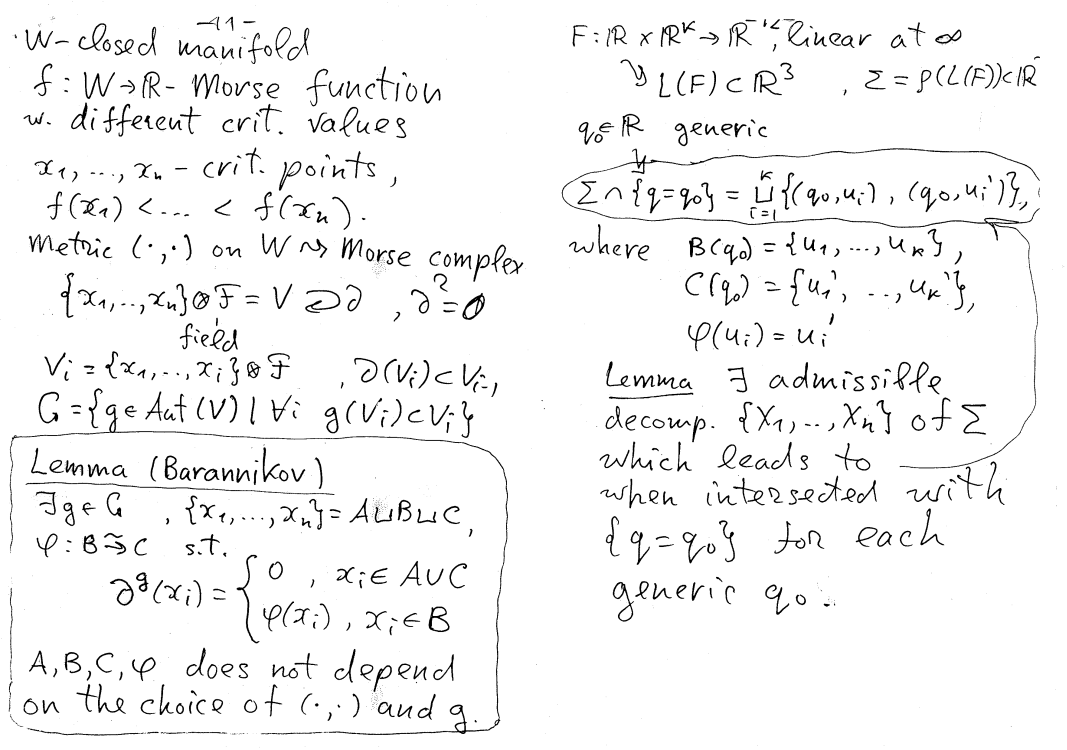 -11-
W-closed manifold
f: W→ℝ- Morse function
w. different crit. values
x₁, ..., xₙ - crit. points,
f(x₁) < ... < f(xₙ).
Metric (·,·) on W ⇝ Morse complex
{x₁,..,xₙ}⊗F = V ⊋∂ , ∂²=0
field
Vᵢ = {x₁,..,xᵢ}⊗F , ∂(Vᵢ)⊂Vᵢ₋₁
G = {g∈Aut(V) | ∀i g(Vᵢ)⊂Vᵢ}
Lemma (Barannikov)
∃g∈G , {x₁,...,xₙ} = A⊔B⊔C,
φ: B≅C s.t.
∂ᵍ(xᵢ) = { 0 , xᵢ∈A∪C
φ(xᵢ) , xᵢ∈B
A,B,C,φ does not depend
on the choice of (·,·) and g.
-12-
F: ℝ × ℝᴷ → ℝ, linear at ∞
⇝ L(F) ⊂ ℝ³ , Σ = ρ(L(F))⊂ℝ
q₀∈ℝ generic
Σ∩{q=q₀} = ⊔ᵢ₌₁ᴷ {(q₀,uᵢ), (q₀,uᵢ')},
where B(q₀) = {u₁, ..., uₖ},
C(q₀) = {u₁', .., uₖ'},
φ(uᵢ) = uᵢ'
Lemma ∃ admissible
decomp. {X₁,..,Xₙ} of Σ
which leads to
when intersected with
{q=q₀} for each
generic q₀.